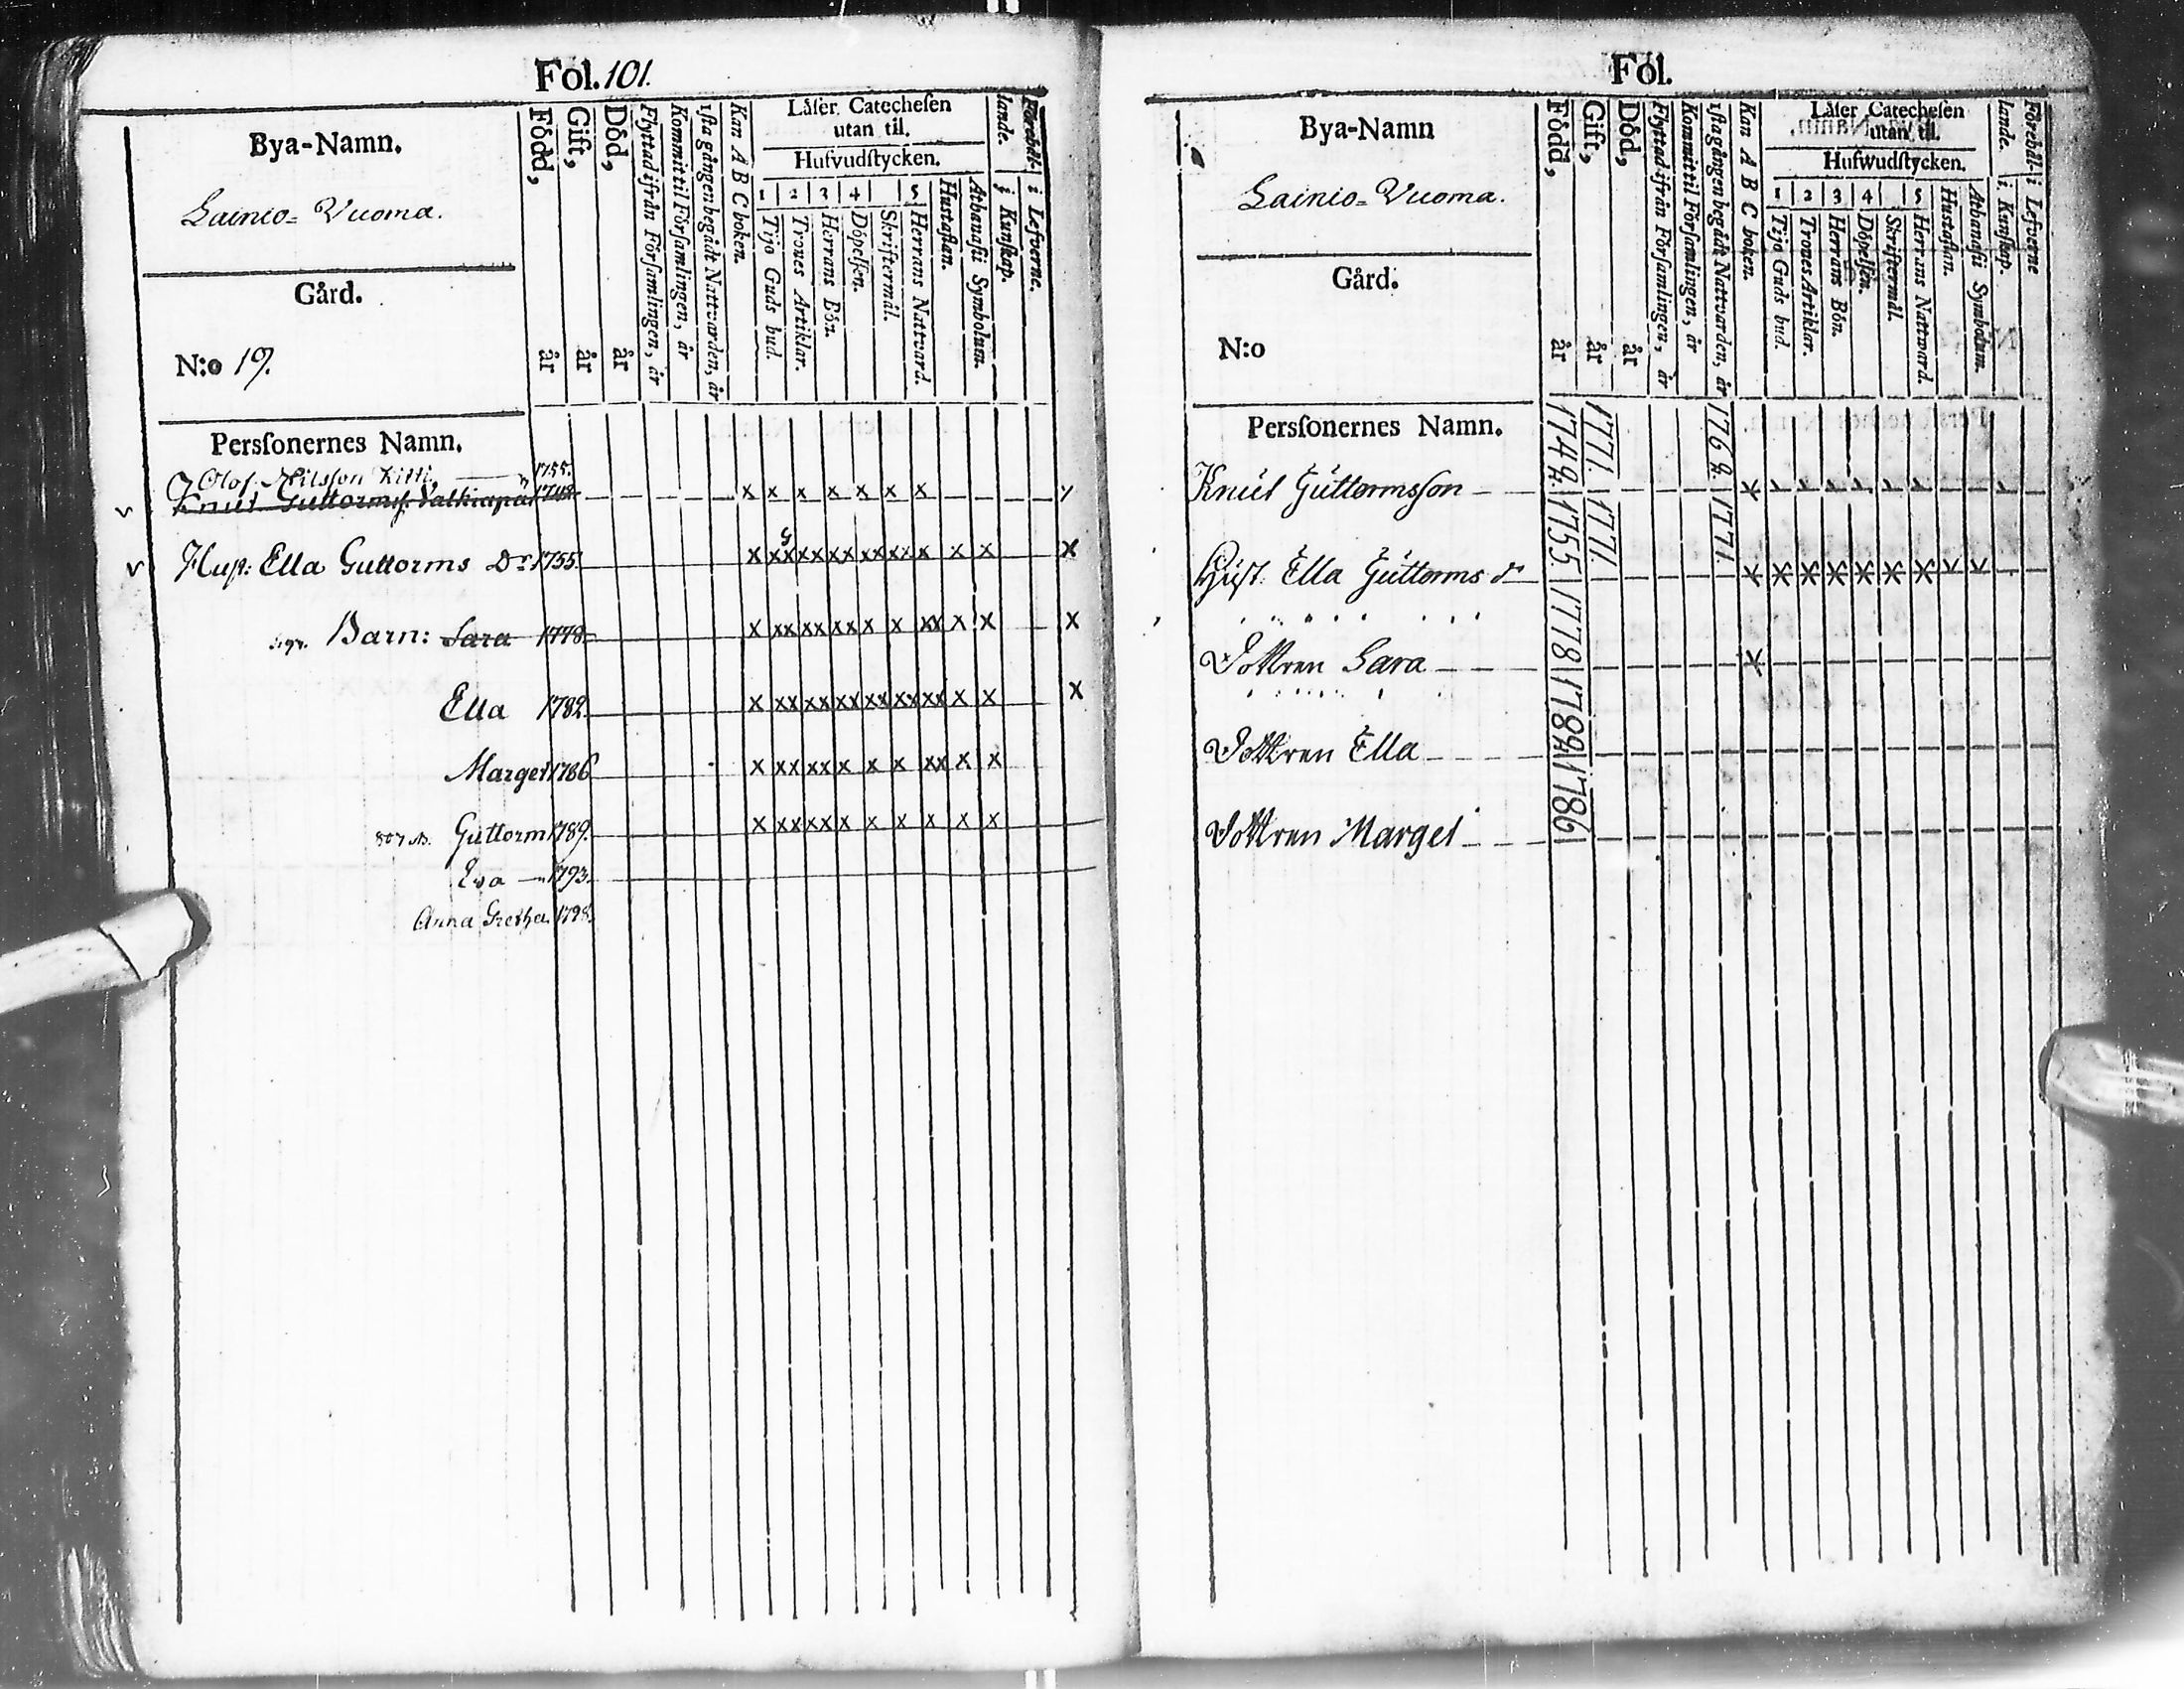 Fol. 101.
Bya-Namn.
Lainio= Vuoma.
Gård.
N:o 19.
Persſonernes Namn.
Född, år
Gift, år
Död, år
Flyttad ifrån Förſamlingen, år
Kommit til Förſamlingen, år
1ſta gången begådt Nattvarden, år
Kan A B C boken.
Läſer Catecheſen
utan til.
Hufvudſtycken.
1 2 3 4 5
Tijo Guds bud.
Trones Artiklar.
Herrans Bön.
Döpelſen.
Skriftermål.
Herrans Nattvard.
Huſtaflan.
Athanaſii Symbolum.
Förehål-
lande.
i Kunſkap.
i Lefverne.
Olof Nilsſon Kitti, 1755.
Knut Guttormsſ. Valkiapää 1742 x x x x x x x
Huſt: Ella Guttorms Dr 1755. x xx xx xx xx xx x x x x
Barn: Sara 1778 x xx xx xx x x xx x x x
Ella 1782. x xx xx xx xx xx xx x x x
Marget 1786 x xx xx x x x xx x x
Guttorm 1789. x xx xx x x x x x x
Eva 1793.
Anna Gretha. 1798.
Fol.
Bya-Namn
Lainio= Vuoma.
Gård.
N:o
Persſonernes Namn.
Född, år
Gift, år
Död, år
Flyttad ifrån Förſamlingen, år
Kommit til Förſamlingen, år
1ſta gången begådt Nattvarden, år
Kan A B C boken.
Läſer Catecheſen
utan til.
Hufwudſtycken.
1 2 3 4 5
Tijo Guds bud.
Trones Artiklar.
Herrans Bön.
Döpelſen.
Skriftermål.
Herrans Nattward.
Huſtaflan.
Athanaſii Symbolum.
Förehål-
lande.
i Kunſkap.
i Lefverne
Knut Guttormsſon 1742 1771. 176
Huſt. Ella Guttorms dr 1755. 1771. 1771. x x x x x x x x x
Dottren Sara 1778 x
Dottren Ella 1782
Dottren Marget 1786